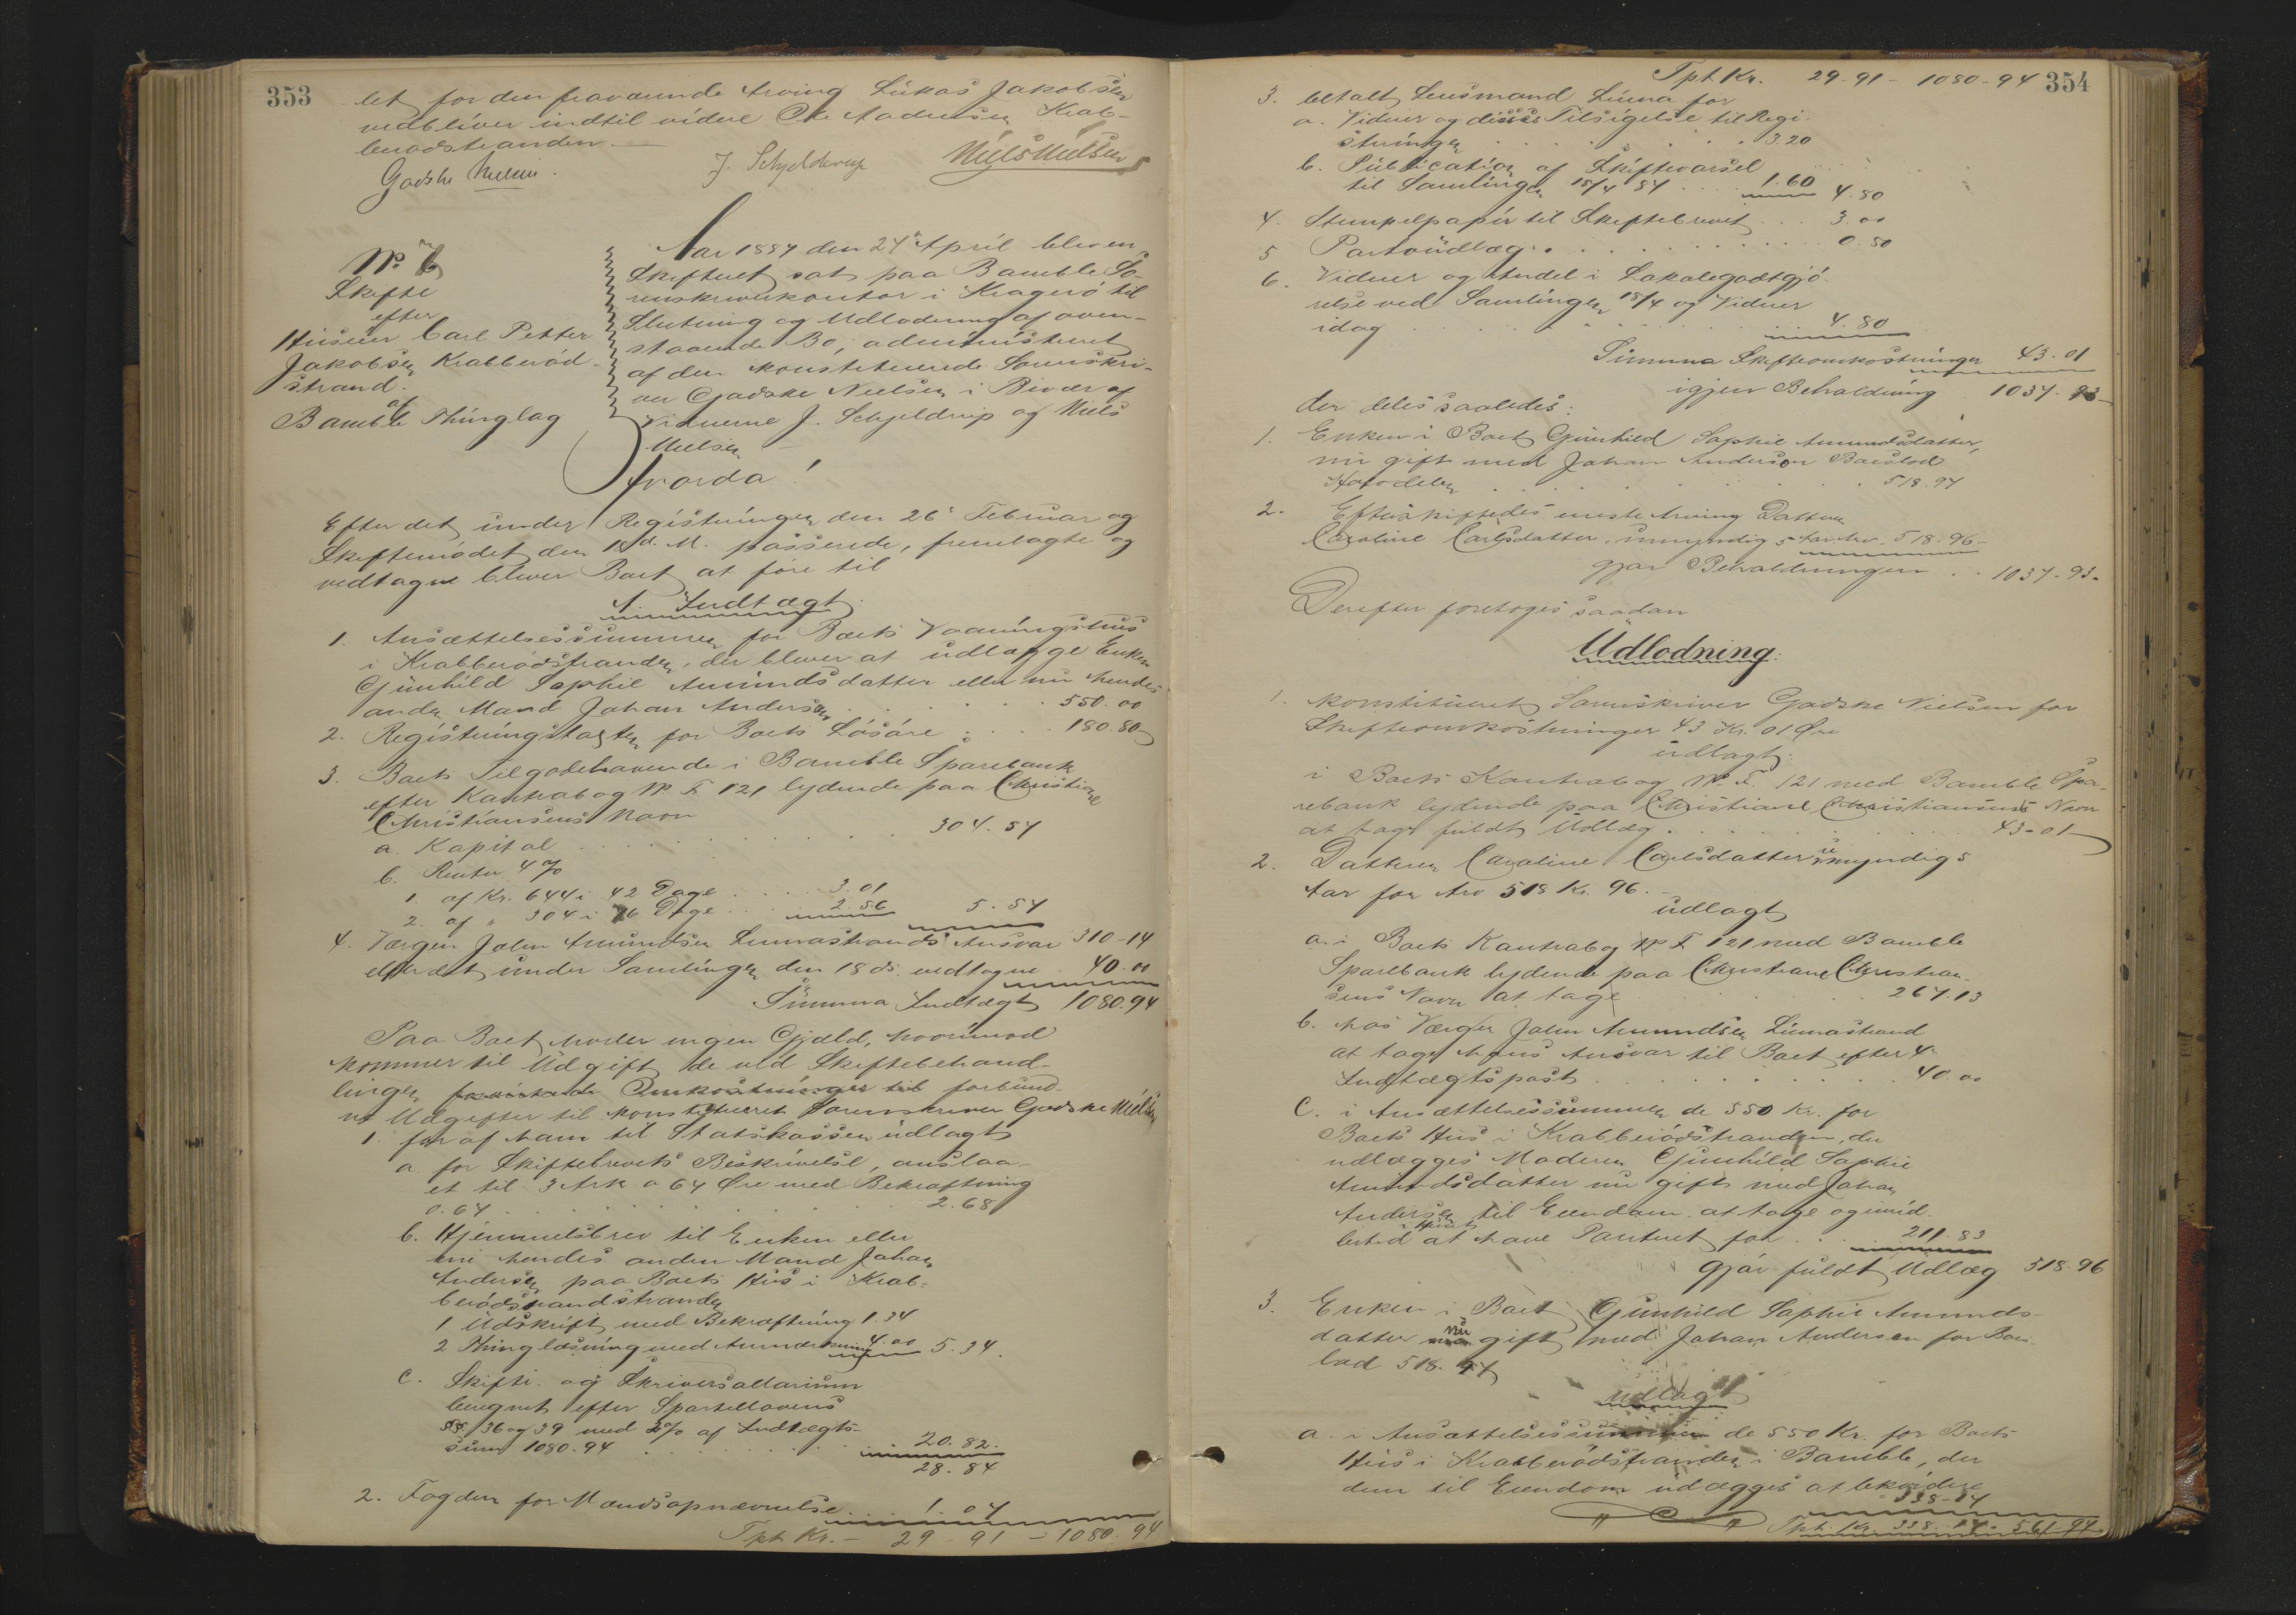 353
let for den fraværende Arving Lukas Jakobsen
vedbliver indtil videre Ole Andersen Krab-
berødstranden. —
Godske Nielsen.
J. Schjelderup
Niels Nielsen
No. 6
Skifte
efter
Huseier Carl Petter
Jakobsen Krabberød-
strand.
af
Bamble Thinglag
Aar 1884 den 24de April blev en
Skifteret sat paa Bamble So-
renskriverkontor i Kragerö til
Slutning og Udlodning af oven-
staaende Bo, administreret
af den konstituerede Sorenskri-
ver Godske Nielsen i Bivær af
Vidnerne J. Schjeldrup og Niels
Nielsen —
Hvorda!
Efter det under Registringen den 26de Februar og
Skiftemödet den 18 d. M. passerede, fremlagte og
vedtagne bliver Boet at före til
A. Indtægt:
1. Ansættelsessummen for Boets Vaaningshus
i Krabberödstranden, der bliver at udlægge Enken
Gunhild Sophie Amundsdatter eller nu hendes
anden Mand Johan Andersen . . . 550.00
2. Registringstaxten for Boets Lösöre . . . 180.80
3. Boets Tilgodehavende i Bamble Sparebank
efter Kontrabog No F. 121 lydende paa Christiane
Christiansens Navn
a. Kapital . . . 304.57
b. Renter 4 %
1. af Kr. 644 i 42 Dage . . . 3.01
2. af " 304 i 76 Dage . . . 2.56 5.57
4. Værgen John Amundsen Linnastrands Ansvar 310-14
efter det under Samlingen den 18 ds. vedtagne . 40.00
Summa Indtægt 1080.94
Paa Boet hviler ingen Gjæld, hvorimod
kommer til Udgift de ved Skiftebehand-
lingen forvirkede Omkostninger til forbund-
ne Udgifter til konstitueret Sorenskriver Godske Nielsen
1. for af ham til Statskassen udlagt
a. for Skiftebrevets Beskrivelse, anslaa-
et til 3 Ark a 67 Øre med Bekræftning
0.67 . . . 2.68
b. Hjemmelsbrev til Enken eller
nu hendes anden Mand Johan
Andersen paa Boets Hus i Krab-
berödstrandstranden
1 Udskrift med Bekræftning 1.34
2 Thinglæsning med Anmærkning 4.00 5.34.
c. Skifte- og Skriversallarium
beregnet efter Sportellovens
§§ 36 og 39 med 2% af Indtægts-
sum 1080-94 . . . 20.82.
28.84
2. Fogden for Mændsopnævnelse . . . 1.07
Tpt. Kr. - 29-91 - 1080.94
354
Tpt. Kr. 29-91 - 1080-94
3. betalt Lensmand Linna for
a. Vidner og disses Tilsigelse til Regi-
stringen . . . 3.20
b. Publication af Skiftevarsel
til Samlingen 18/4 84 . . . 1.60 4.80
4. Stempelpapir til Skiftebrevet . . . 3.00
5 Portoudlæg . . . 0.80
6. Vidner og Andel i Lokalegodtgjö-
relse ved Samlingen 18/4 og Vidner
idag . . . 4.80
Summa Skifteomkostninger 43.01
igjen Beholdning 1037-93
der deles saaledes:
1. Enken i Boet Gunhild Sophie Amundsdatter,
nu gift med Johan Anderson Boeslod
Halvdelen . . . 518.97
2. Efterskiftedes eneste Arving Datteren
Caroline Carlsdatter, umyndig 5 Aar Arv 518.96
gjør Beholdningen . . 1037-93.
Derefter foretoges saadan
Udlodning:
1. konstitueret Sorenskriver Godske Nielsen for
Skifteomkostninger 43 Kr. 01 Øre
udlagt:
i Boets Kontrabog No F. 121 med Bamble Spa-
rebank lydende paa Christiane Christiansens Navn
at tage fuldt Udlæg . . . 43-01
2. Datteren Caroline Carlsdatter umyndig 5
Aar for Arv 518 Kr. 96. —
udlagt
a. i Boets Kontrabog No F. 121 med Bamble
Sparebank lydende paa Christiane Christian-
sens Navn at tage . . . 267.13
b. hos Værgen John Amundsen Linnastrand
at tage hans Ansvar til Boet efter 4de
Indtægtspost . . . 40.00
C. i Ansættelsessummen de 550 Kr. for
Boets Hus i Krabberödstranden, der
udlægges Moderen Gunhild Sophie
Amundsdatter nu gift med Johan
Andersen til Eiendom at tage og imid-
lertid i Huset at have Panteret for . . . 211.83
gjør fuldt Udlæg 518.96
3. Enken i Boet Gunhild Sophie Amunds-
datter nu gift med Johan Andersen for Boes-
lod 518.97
udlagt
a. i Ansættelsessummen de 550 Kr. for Boets
Hus i Krabberödstranden i Bamble, der
dem til Eiendom udlægges at bekvidere
338-17
Tpt. Kr. 338.17 - 561-97